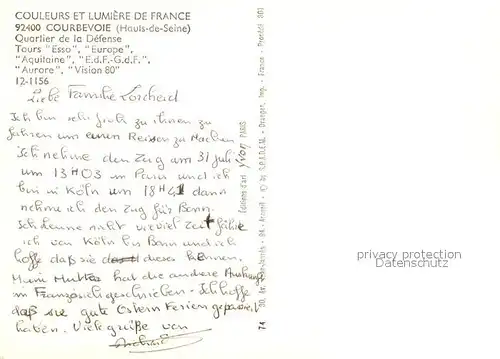 COULEURS ET LUMIÈRE DE FRANCE
92400 COURBEVOIE (Hauts-de-Seine)
Quartier de la Défense
Tours "Esso", "Europe",
"Aquitaine", "E.d.F.-G.d.F.",
"Aurore", "Vision 80"
12-1156
Liebe Familie
Ich bin sehr froh zu ihnen zu
fahren um einen Reisen zu machen
Ich nehme den Zug am 31 juli
um 13H03 in Paris und ich
bin in Köln um 18H41 dann
nehme ich den Zug für Bonn.
Ich kenne nicht wieviel Zeit fährt
ich von Köln bis Bonn und ich
hoffe daß sie dieses kennen.
Meine Mutter hat die andere
in Französisch geschrieben. Ich hoffe
daß sie gute Ostern Ferien gepasst
haben. Viele grüße von
Editions d'art yvon PARIS
94 - Arcueil - © by S.P.A.D.E.M. - Draeger, Imp. - France - Procédé 301
74
privacy protection
Datenschutz